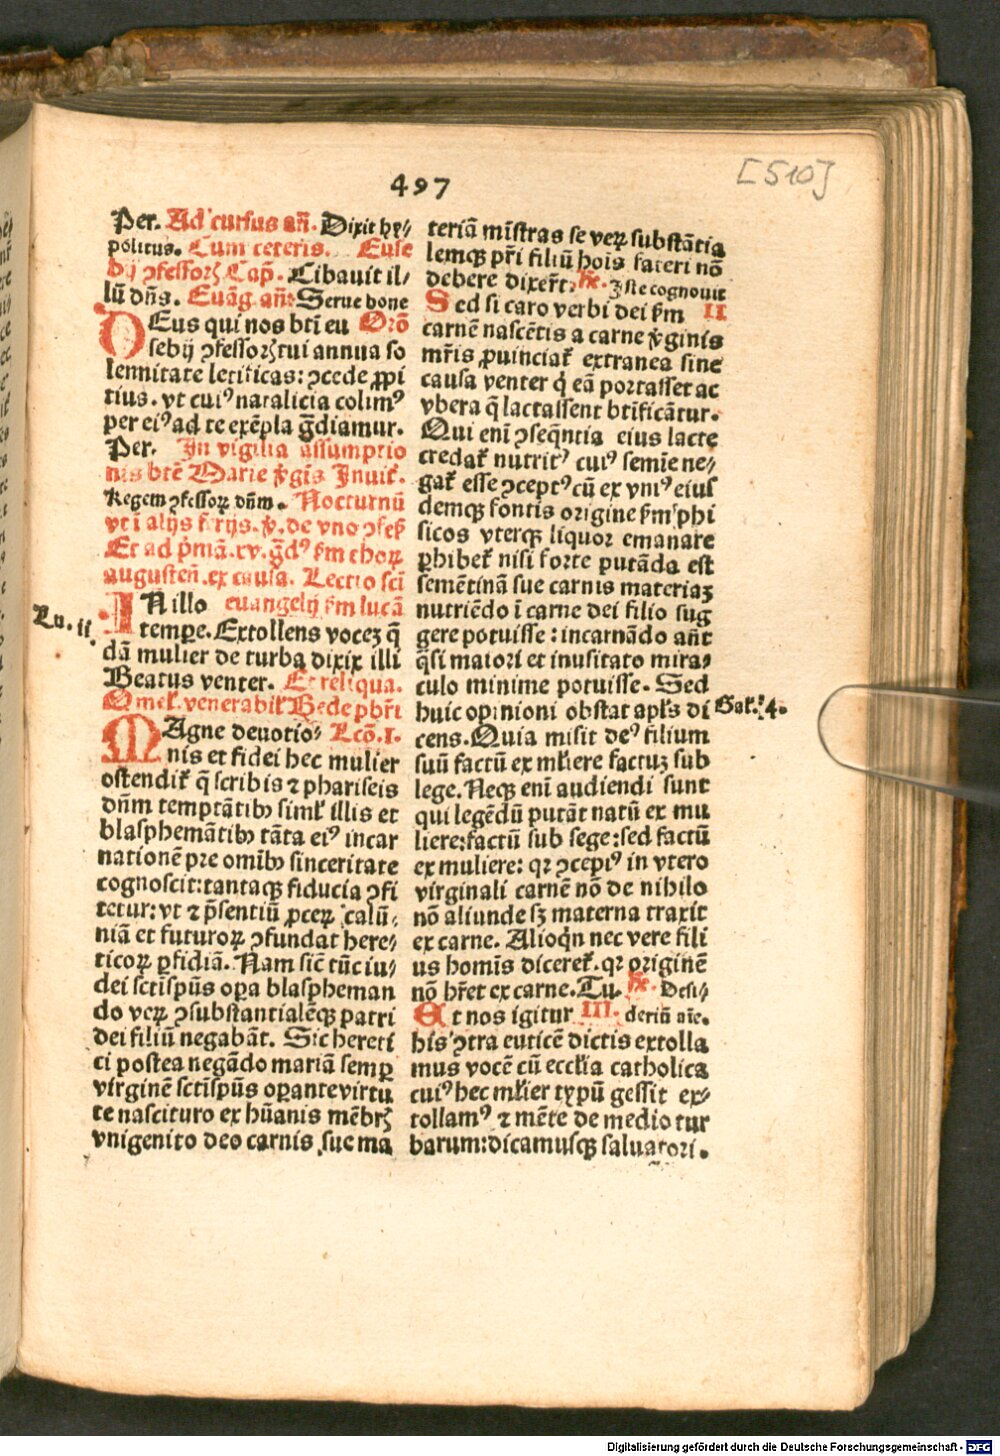 497
[510]
Per. Ad cursus añ. Dixit hy⸗
politus. Cum ceteris. Euse
bij ꝯfessorꝫ Cap̃. Cibauit il⸗
lũ dñs. Euãg. añ: Serue bone
DEus qui nos btĩ eu Orõ
sebij ꝯfessorꝫ tui annua so
lennitate letificas: ꝯcede ꝓpi
tius. vt cuiꝰ natalicia colimꝰ
per eiꝰ ad te exẽpla g̃diamur.
Per. In vigilia assumptio
nis btẽ Marie ṽgĩs Inuit̃.
Regem ꝯfessoꝝ dñm. Nocturnũ
vt ĩ alijs ferijs. ṽ. de vno ꝯfes̃
Et ad p̃mã. xv. g̃dꝰ s̃m choꝝ
augusteñ. ex causa. Lectio sci
IN illo euangelij s̃m lucã
Lu. ii
tempe. Extollens voceꝫ q̃
dã mulier de turba dixit illi
Beatus venter. Et reliqua.
Omel̃. venerabil̃ Bede pb̃ri
MAgne deuotio⸗ Lcõ. I.
nis et fidei hec mulier
ostendit̃ q̃ scribis ⁊ phariseis
dñm temptãtibꝫ siml̃ illis et
blasphemãtibꝫ tãta eiꝰ incar
nationẽ pre omibꝫ sinceritate
cognoscit: tantaqꝫ fiducia ꝯfi
tetur: vt ⁊ p̃sentiũ ꝓceꝝ calũ⸗
niã et futuroꝝ ꝯfundat here⸗
ticoꝝ ꝑfidiã. Nam sic̃ tũc iu⸗
dei sctĩspũs oꝑa blaspheman
do veꝝ ꝯsubstantialẽqꝫ patri
dei filiũ negabãt. Sic hereti
ci postea negãdo mariã semꝑ
virginẽ sctĩspũs oꝑante virtu
te nascituro ex hũanis mẽbrꝫ
vnigenito deo carnis sue ma
teriã mĩstras se veꝝ substãtia
lemqꝫ pr̃i filiũ hoĩs fateri nõ
debere dixer̃t. ℟. Iste cognouit
Sed si caro verbi dei s̃m II
carnẽ nascẽtis a carne ṽginis
mr̃is ꝓnunciat̃ extranea sine
causa venter q̇ eã portasset ac
vbera q̃ lactassent btĩficãtur.
Qui eni ꝯseq̃ntia eius lacte
credat̃ nutritꝰ cuiꝰ semĩe ne⸗
gat̃ esse ꝯceptꝰ cũ ex vniꝰ eius
demqꝫ fontis origine s̃m phi
sicos vterqꝫ liquor emanare
ꝓhibet̃ nisi forte putãda est
semẽtinã sue carnis materiaꝫ
nutriẽdo ĩ carne dei filio sug
gere potuisse: incarnãdo añt
q̃si maiori et inusitato mira⸗
culo minime potuisse. Sed
huic opinioni obstat apl̃s di
Gal̃. 4.
cens. Quia misit deꝰ filium
suũ factũ ex ml̃iere factuꝫ sub
lege. Neqꝫ eni audiendi sunt
qui legẽdũ putãt natũ ex mu
liere: factũ sub lege: sed factũ
ex muliere: qꝛ ꝯcepiꝰ in vtero
virginali carnẽ nõ de nihilo
nõ aliunde sꝫ materna traxit
ex carne. Alioq̇n nec vere fili
us homĩs diceret̃. qꝛ originẽ
nõ hr̃et ex carne. Tu. ℟. Desi⸗
Et nos igitur III. deriũ aĩe.
his ꝯtra euticẽ dictis extolla
mus vocẽ cũ eccl̃ia catholica
cuiꝰ hec ml̃ier typũ gessit ex⸗
tollamꝰ ⁊ mẽte de medio tur
barum: dicamusqꝫ saluatori.
Digitalisierung gefördert durch die Deutsche Forschungsgemeinschaft - DFG